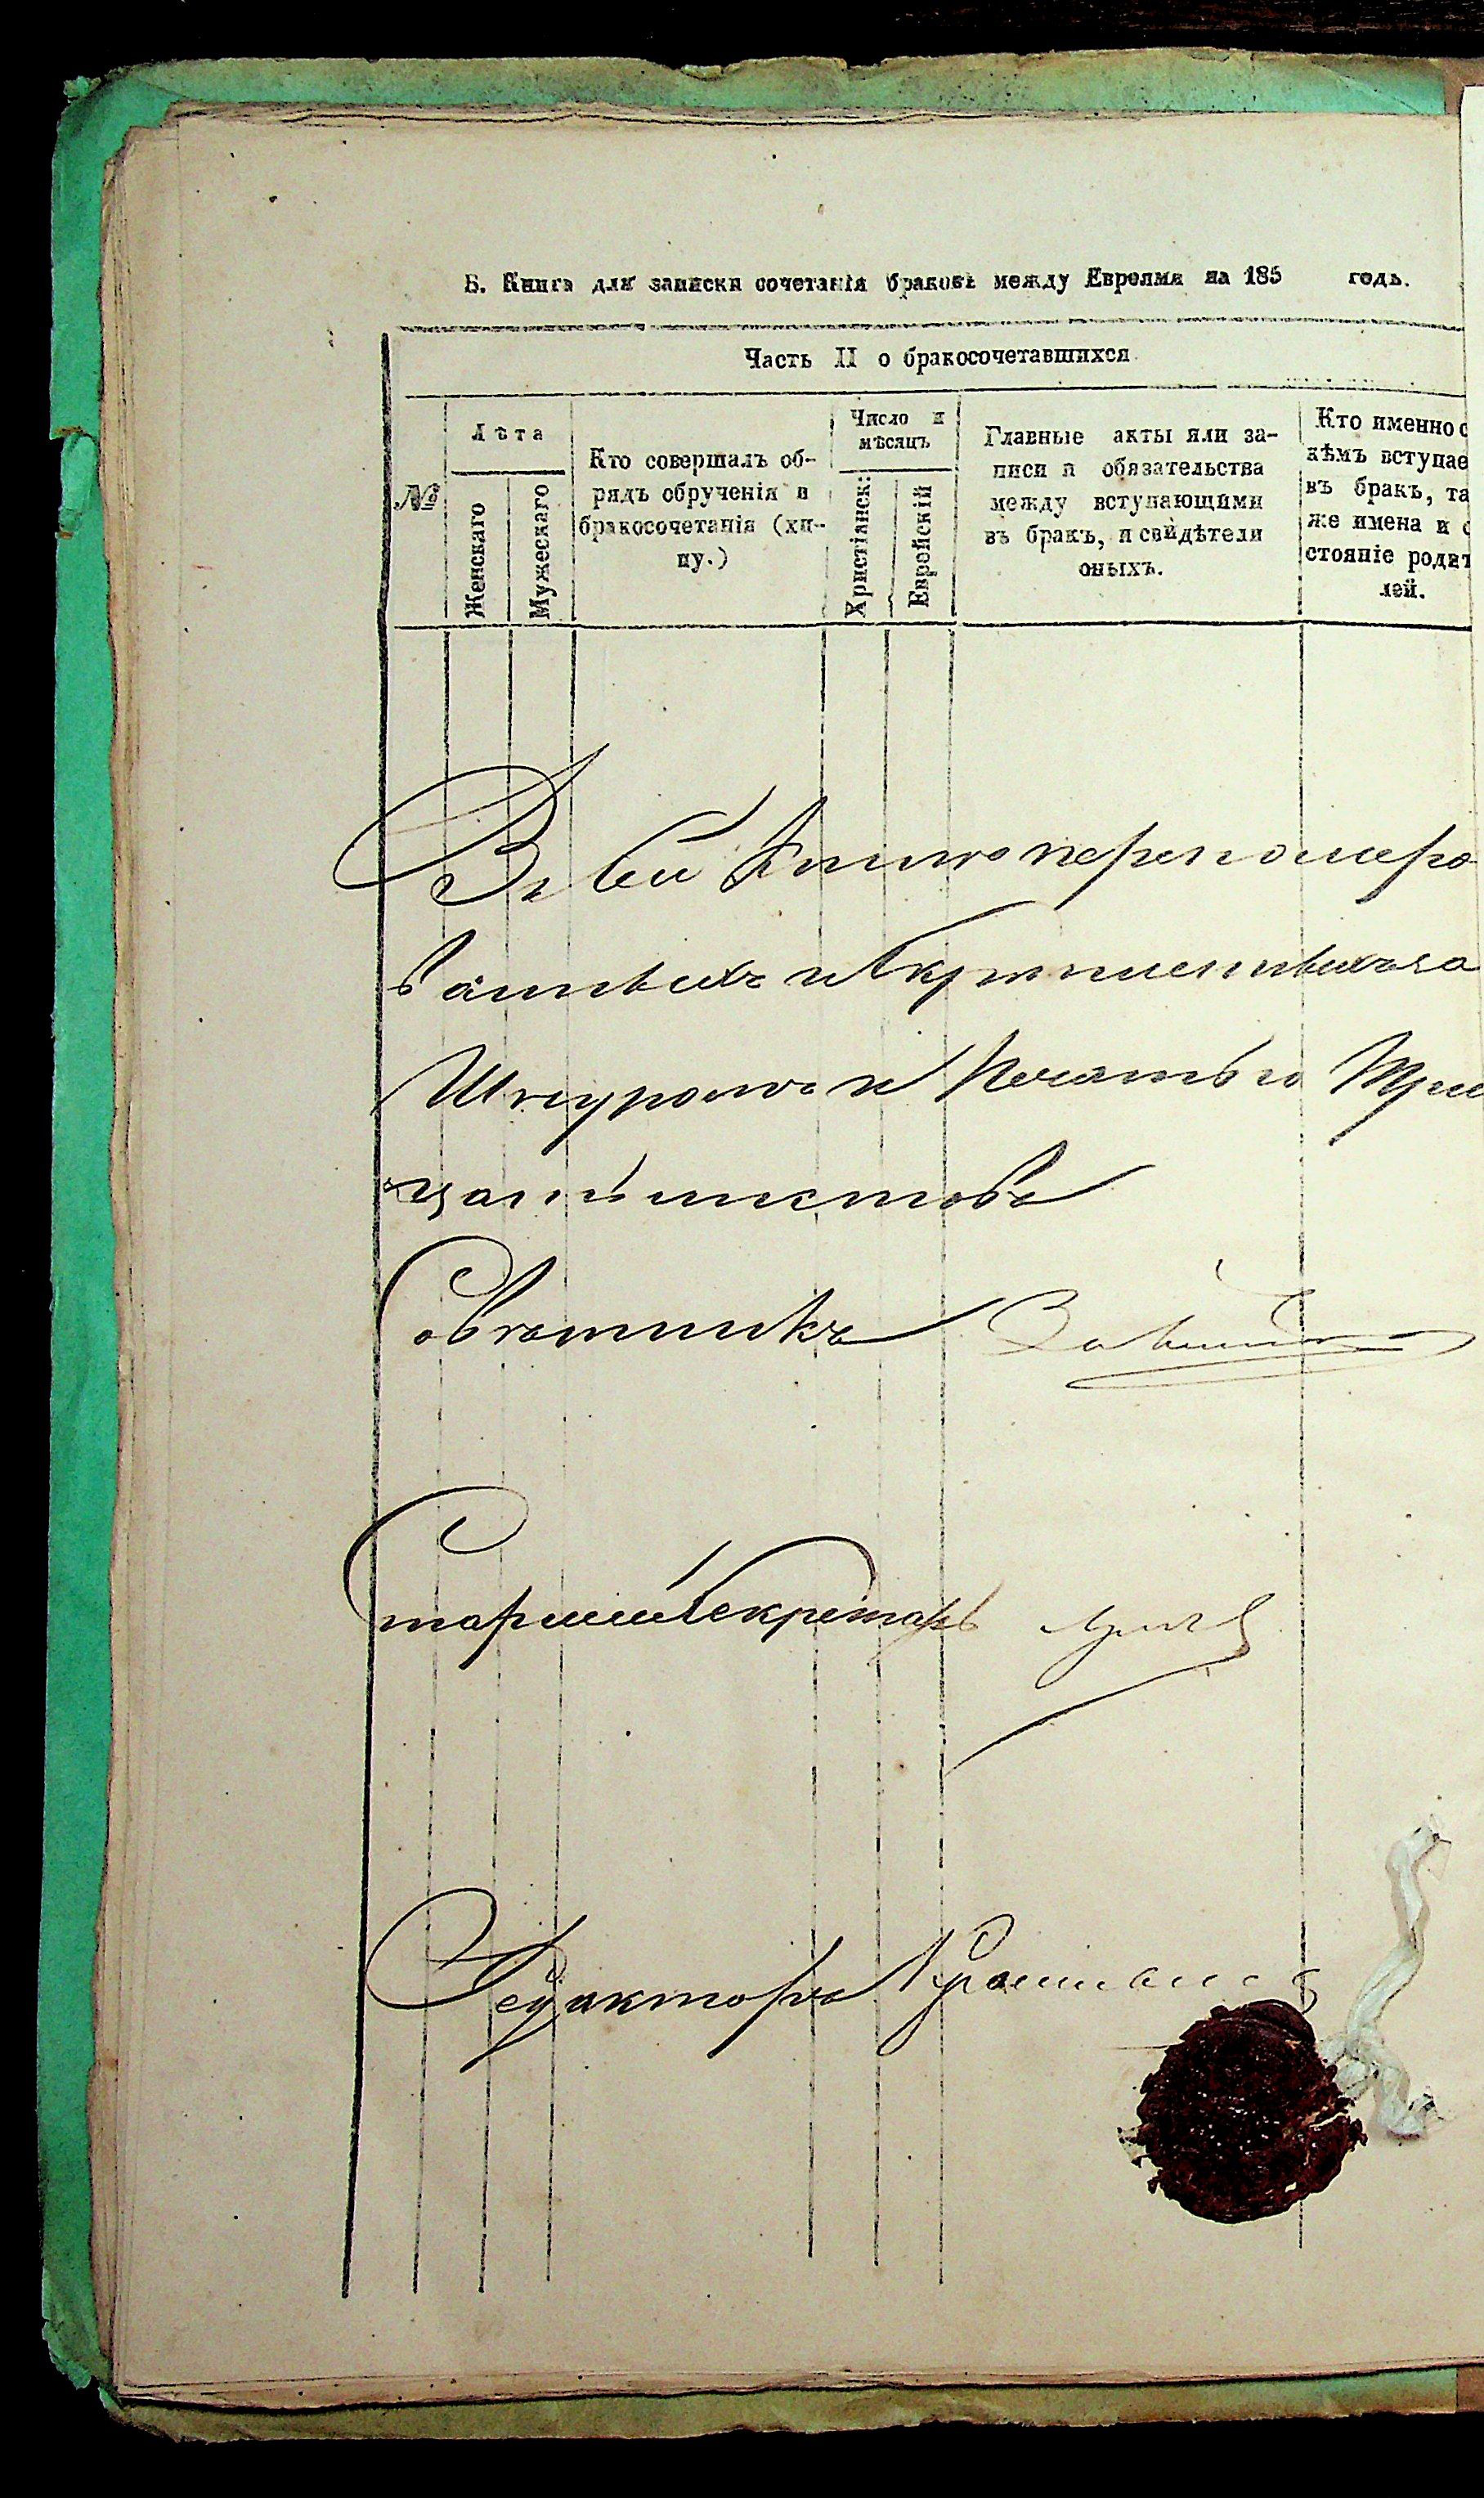 Б. Книга для записки сочетанія браковъ между Евреями на 185 годъ.
Часть II о бракосочетавшихся
№
Лѣта
Женскаго
Мужескаго
Кто совершалъ об-
рядъ обрученія и
бракосочетанія (хи-
пу.)
Число и
мѣсяцъ
Христіанск:
Еврейскій
Главные акты или за-
писи и обязательства
между вступающими
въ бракъ, и свидѣтели
оныхъ.
Кто именно с
кѣмъ вступае
въ бракъ, та
же имена и с
стояніе родит
лей.
Въ сей книгѣ перенумеро
ванныхъ и скрѣпленныхъ за
Шнуромъ и Печатью Три
цать листовъ
Совѣтникъ
Старшій Секретарь
Редакторъ